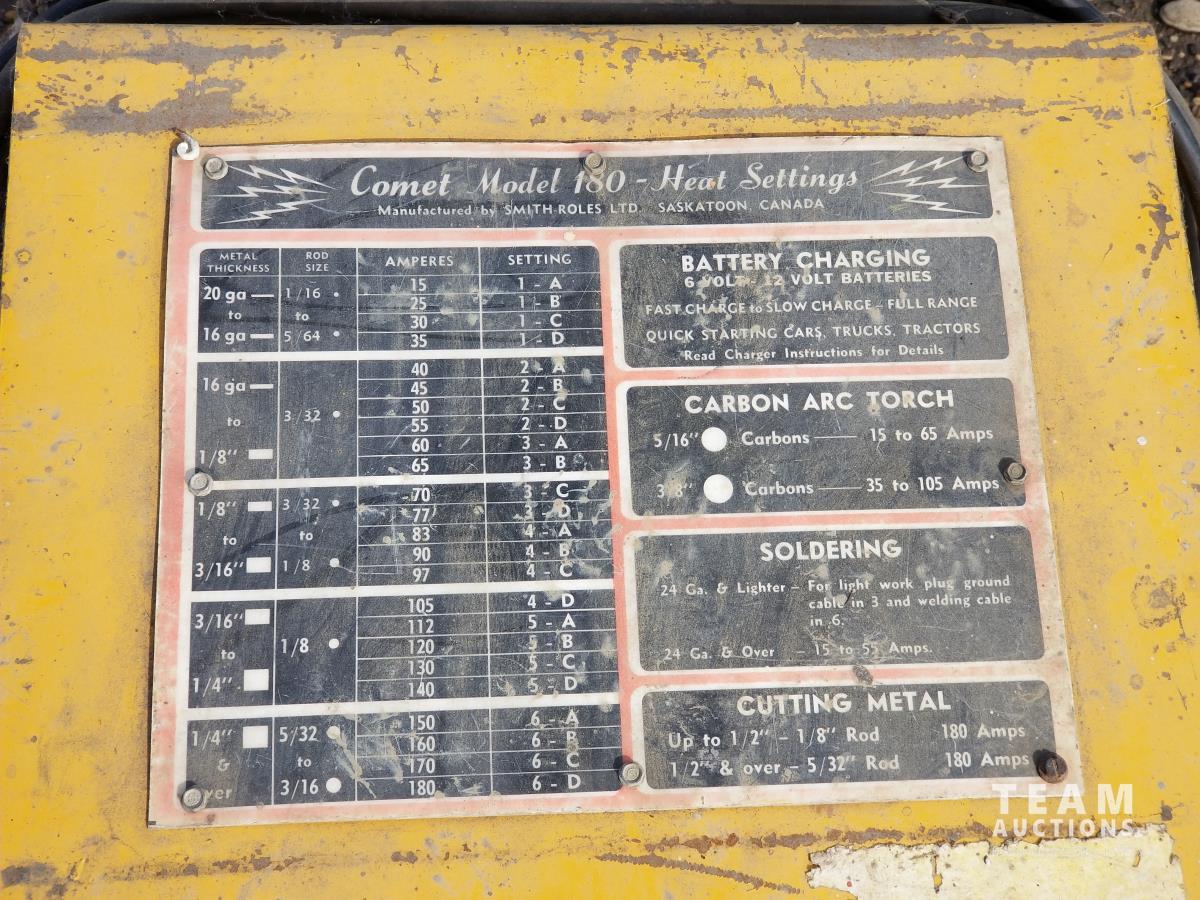 Comet Model 180 - Heat Settings
Manufactured by SMITH-ROLES LTD. SASKATOON, CANADA
METAL THICKNESS ROD SIZE AMPERES SETTING
20 ga — 1/16 • 15 1 - A
to to 25 1 - B
30 1 - C
16 ga — 5/64 • 35 1 - D
16 ga — 40 2 - A
45 2 - B
3/32 • 50 2 - C
to 55 2 - D
60 3 - A
1/8" 65 3 - B
1/8" 3/32 • 70 3 - C
77 3 - D
to to 83 4 - A
90 4 - B
3/16" 1/8 • 97 4 - C
3/16" 105 4 - D
112 5 - A
to 1/8 • 120 5 - B
130 5 - C
1/4" 140 5 - D
1/4" 5/32 150 6 - A
& to 160 6 - B
170 6 - C
3/16 180 6 - D
BATTERY CHARGING
6 VOLT - 12 VOLT BATTERIES
FAST CHARGE to SLOW CHARGE - FULL RANGE
QUICK STARTING CARS, TRUCKS, TRACTORS
Read Charger Instructions for Details
CARBON ARC TORCH
5/16" Carbons — 15 to 65 Amps
3/8" Carbons — 35 to 105 Amps
SOLDERING
24 Ga. & Lighter - For light work plug ground
cable in 3 and welding cable
in 6.
24 Ga. & Over - 15 to 55 Amps.
CUTTING METAL
Up to 1/2" - 1/8" Rod 180 Amps
1/2" & over - 5/32" Rod 180 Amps
TEAM
AUCTIONS